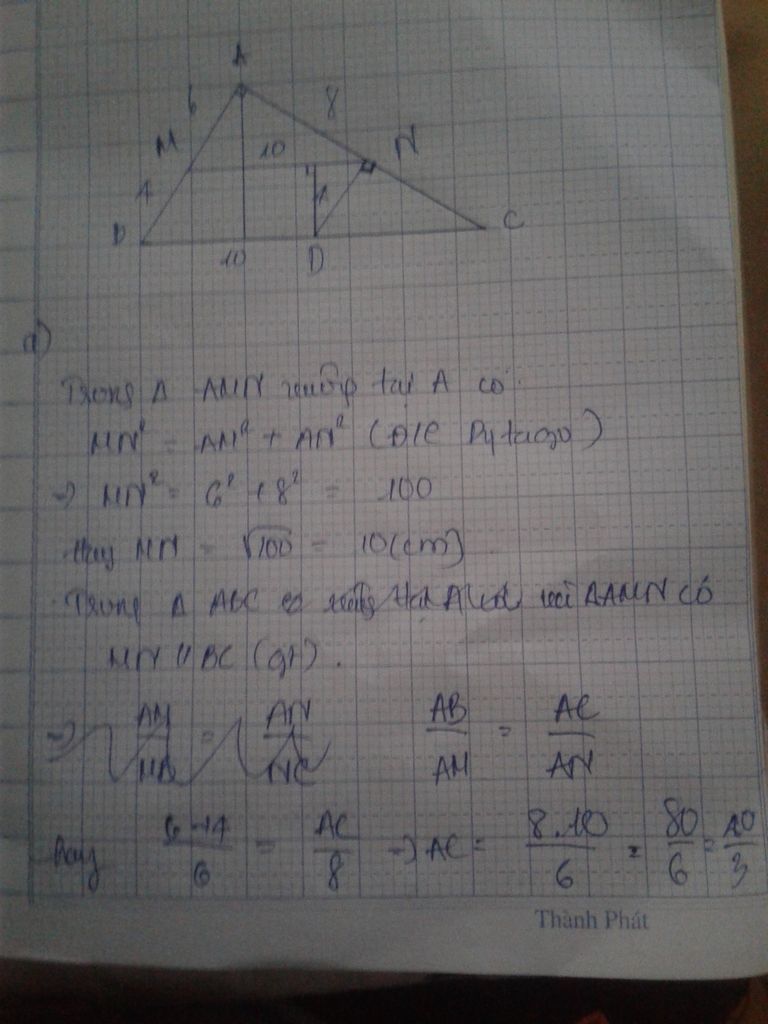 A
6
8
M
10
N
4
4
B
C
10
D
a)
Trong Δ AMN vuông tại A có:
MN² = AM² + AN² (Đ/l Pytago)
=> MN² = 6² + 8² = 100
Hay MN = √100 = 10 (cm)
Trong Δ ABC có ΔAMN có
MN // BC (gt).
=> AM/MB = AN/NC AB/AM = AC/AN
Hay 6+4/6 = AC/8 => AC = 8.10/6 = 80/6 = 20/3
Thành Phát